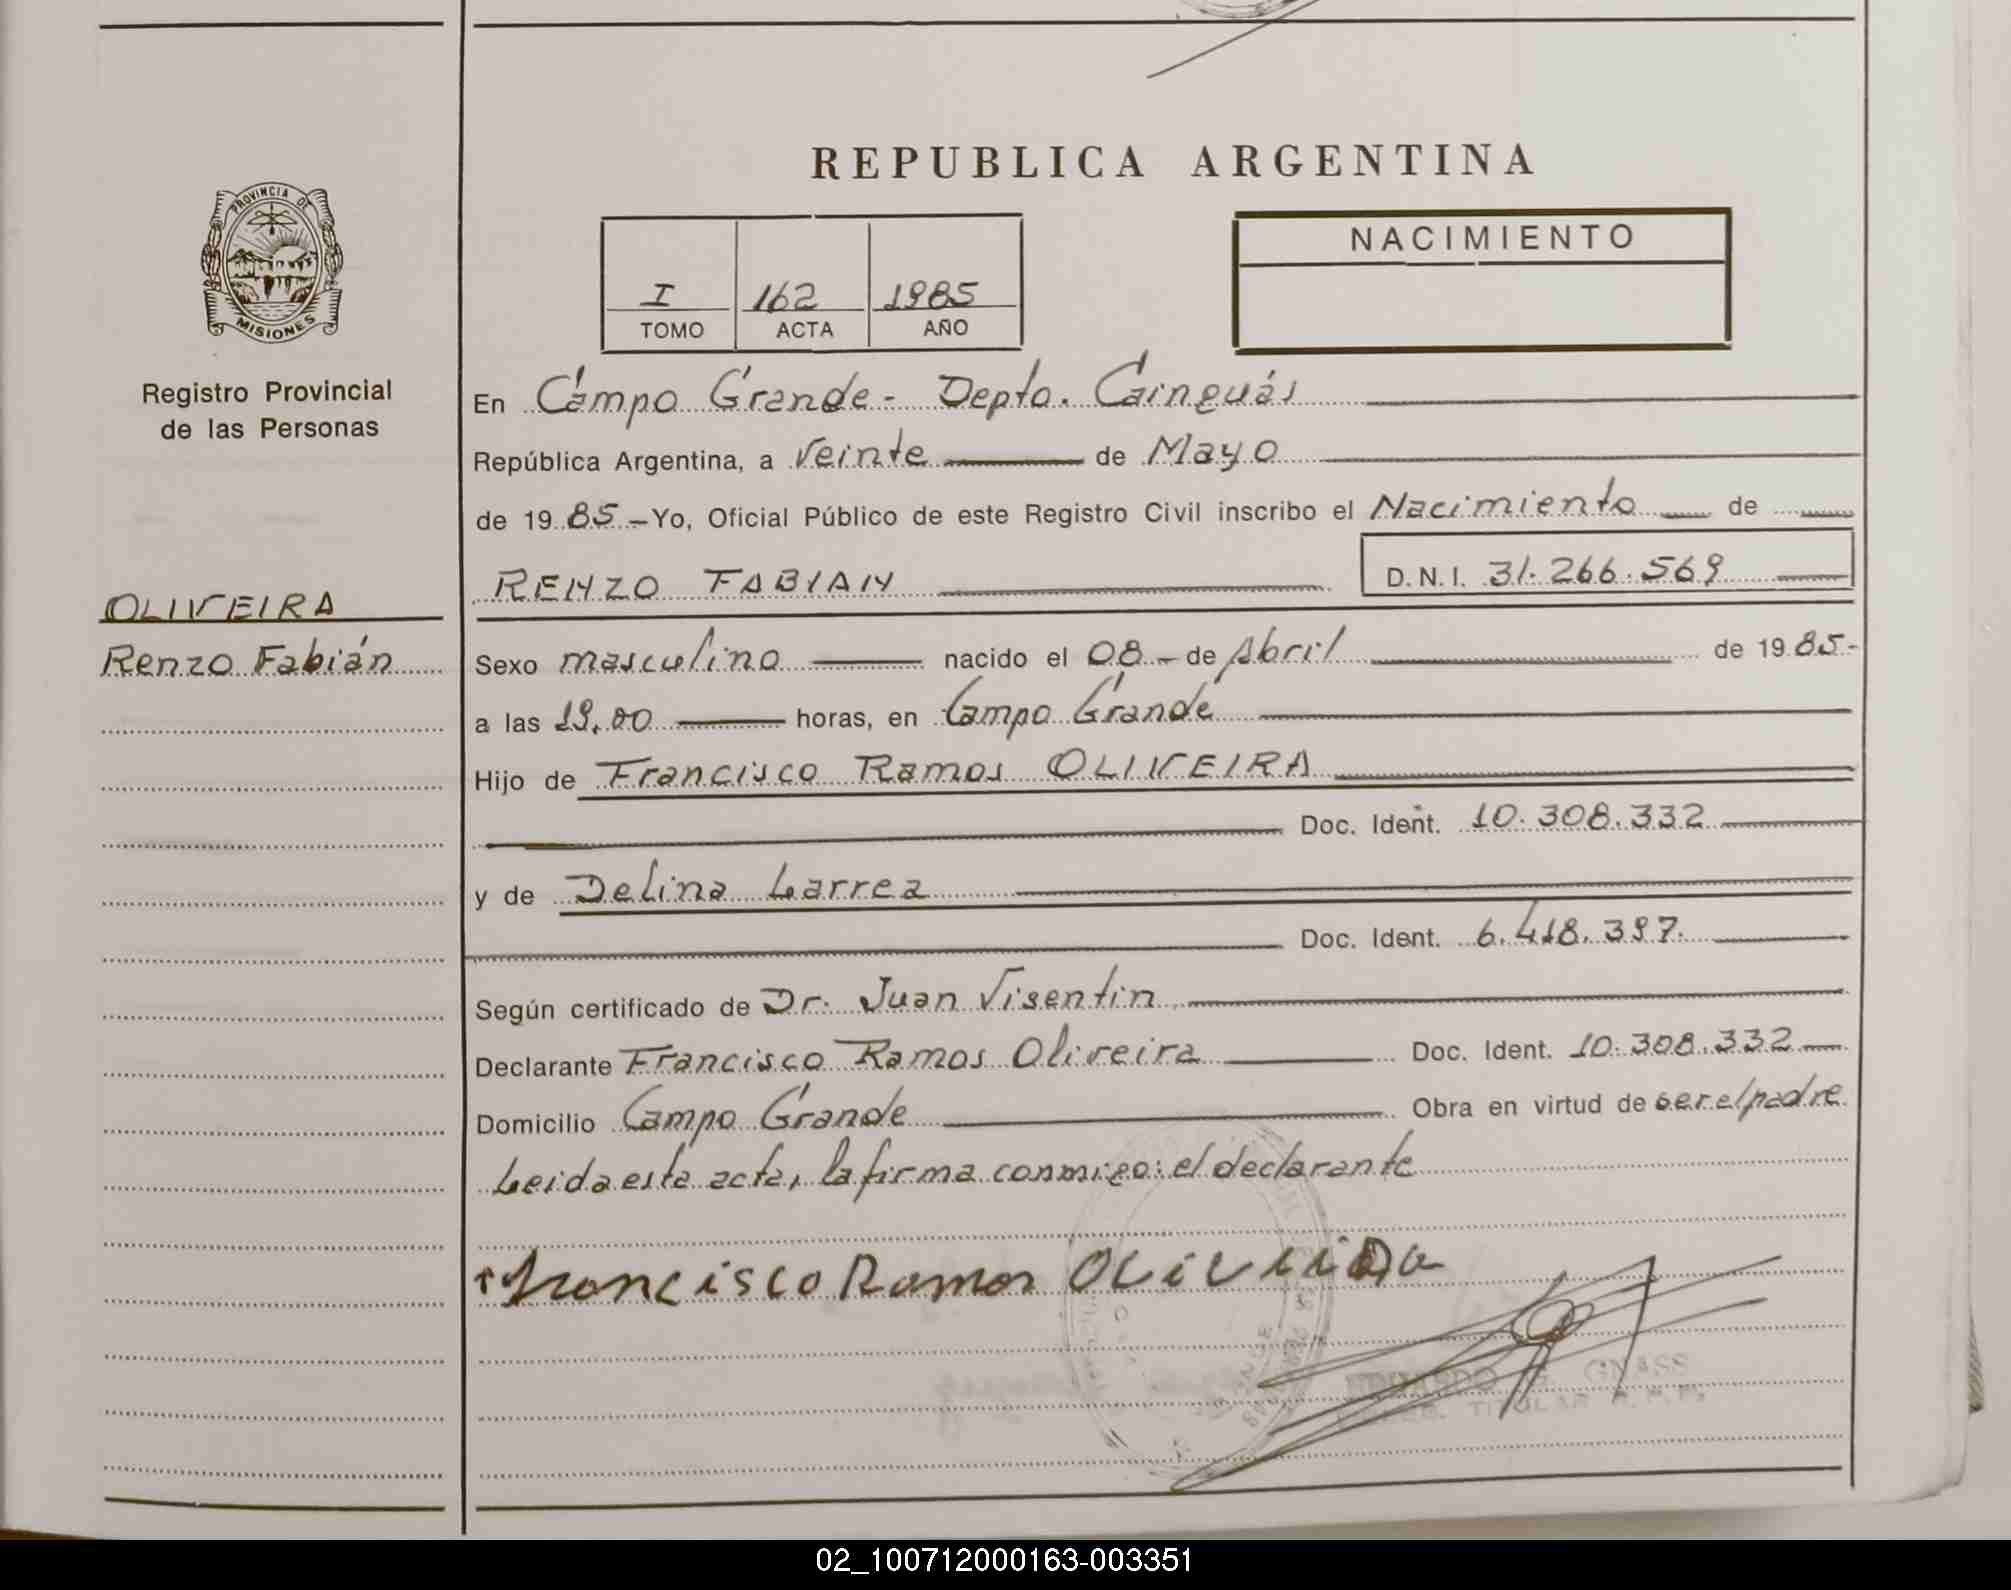 REPUBLICA ARGENTINA
PROVINCIA DE
MISIONES
Registro Provincial
de las Personas
I 162 1985
TOMO ACTA AÑO
NACIMIENTO
En Campo Grande - Depto. Cainguás
República Argentina, a Veinte de Mayo
de 19 85 - Yo, Oficial Público de este Registro Civil inscribo el Nacimiento de
RENZO FABIAN D.N.I. 31.266.569
OLIVEIRA
Renzo Fabián
Sexo masculino nacido el 08 - de Abril de 19 85 -
a las 19,00 horas, en Campo Grande
Hijo de Francisco Ramos OLIVEIRA
Doc. Ident. 10.308.332
y de Delina Larrea
Doc. Ident. 6.418.397.
Según certificado de Dr. Juan Visentin
Declarante Francisco Ramos Oliveira Doc. Ident. 10.308.332
Domicilio Campo Grande Obra en virtud de ser el padre
Leida esta acta, la firma conmigo: el declarante
Francisco Ramos
EDUARDO GNASS
TITULAR R.P.P.
02_100712000163-003351